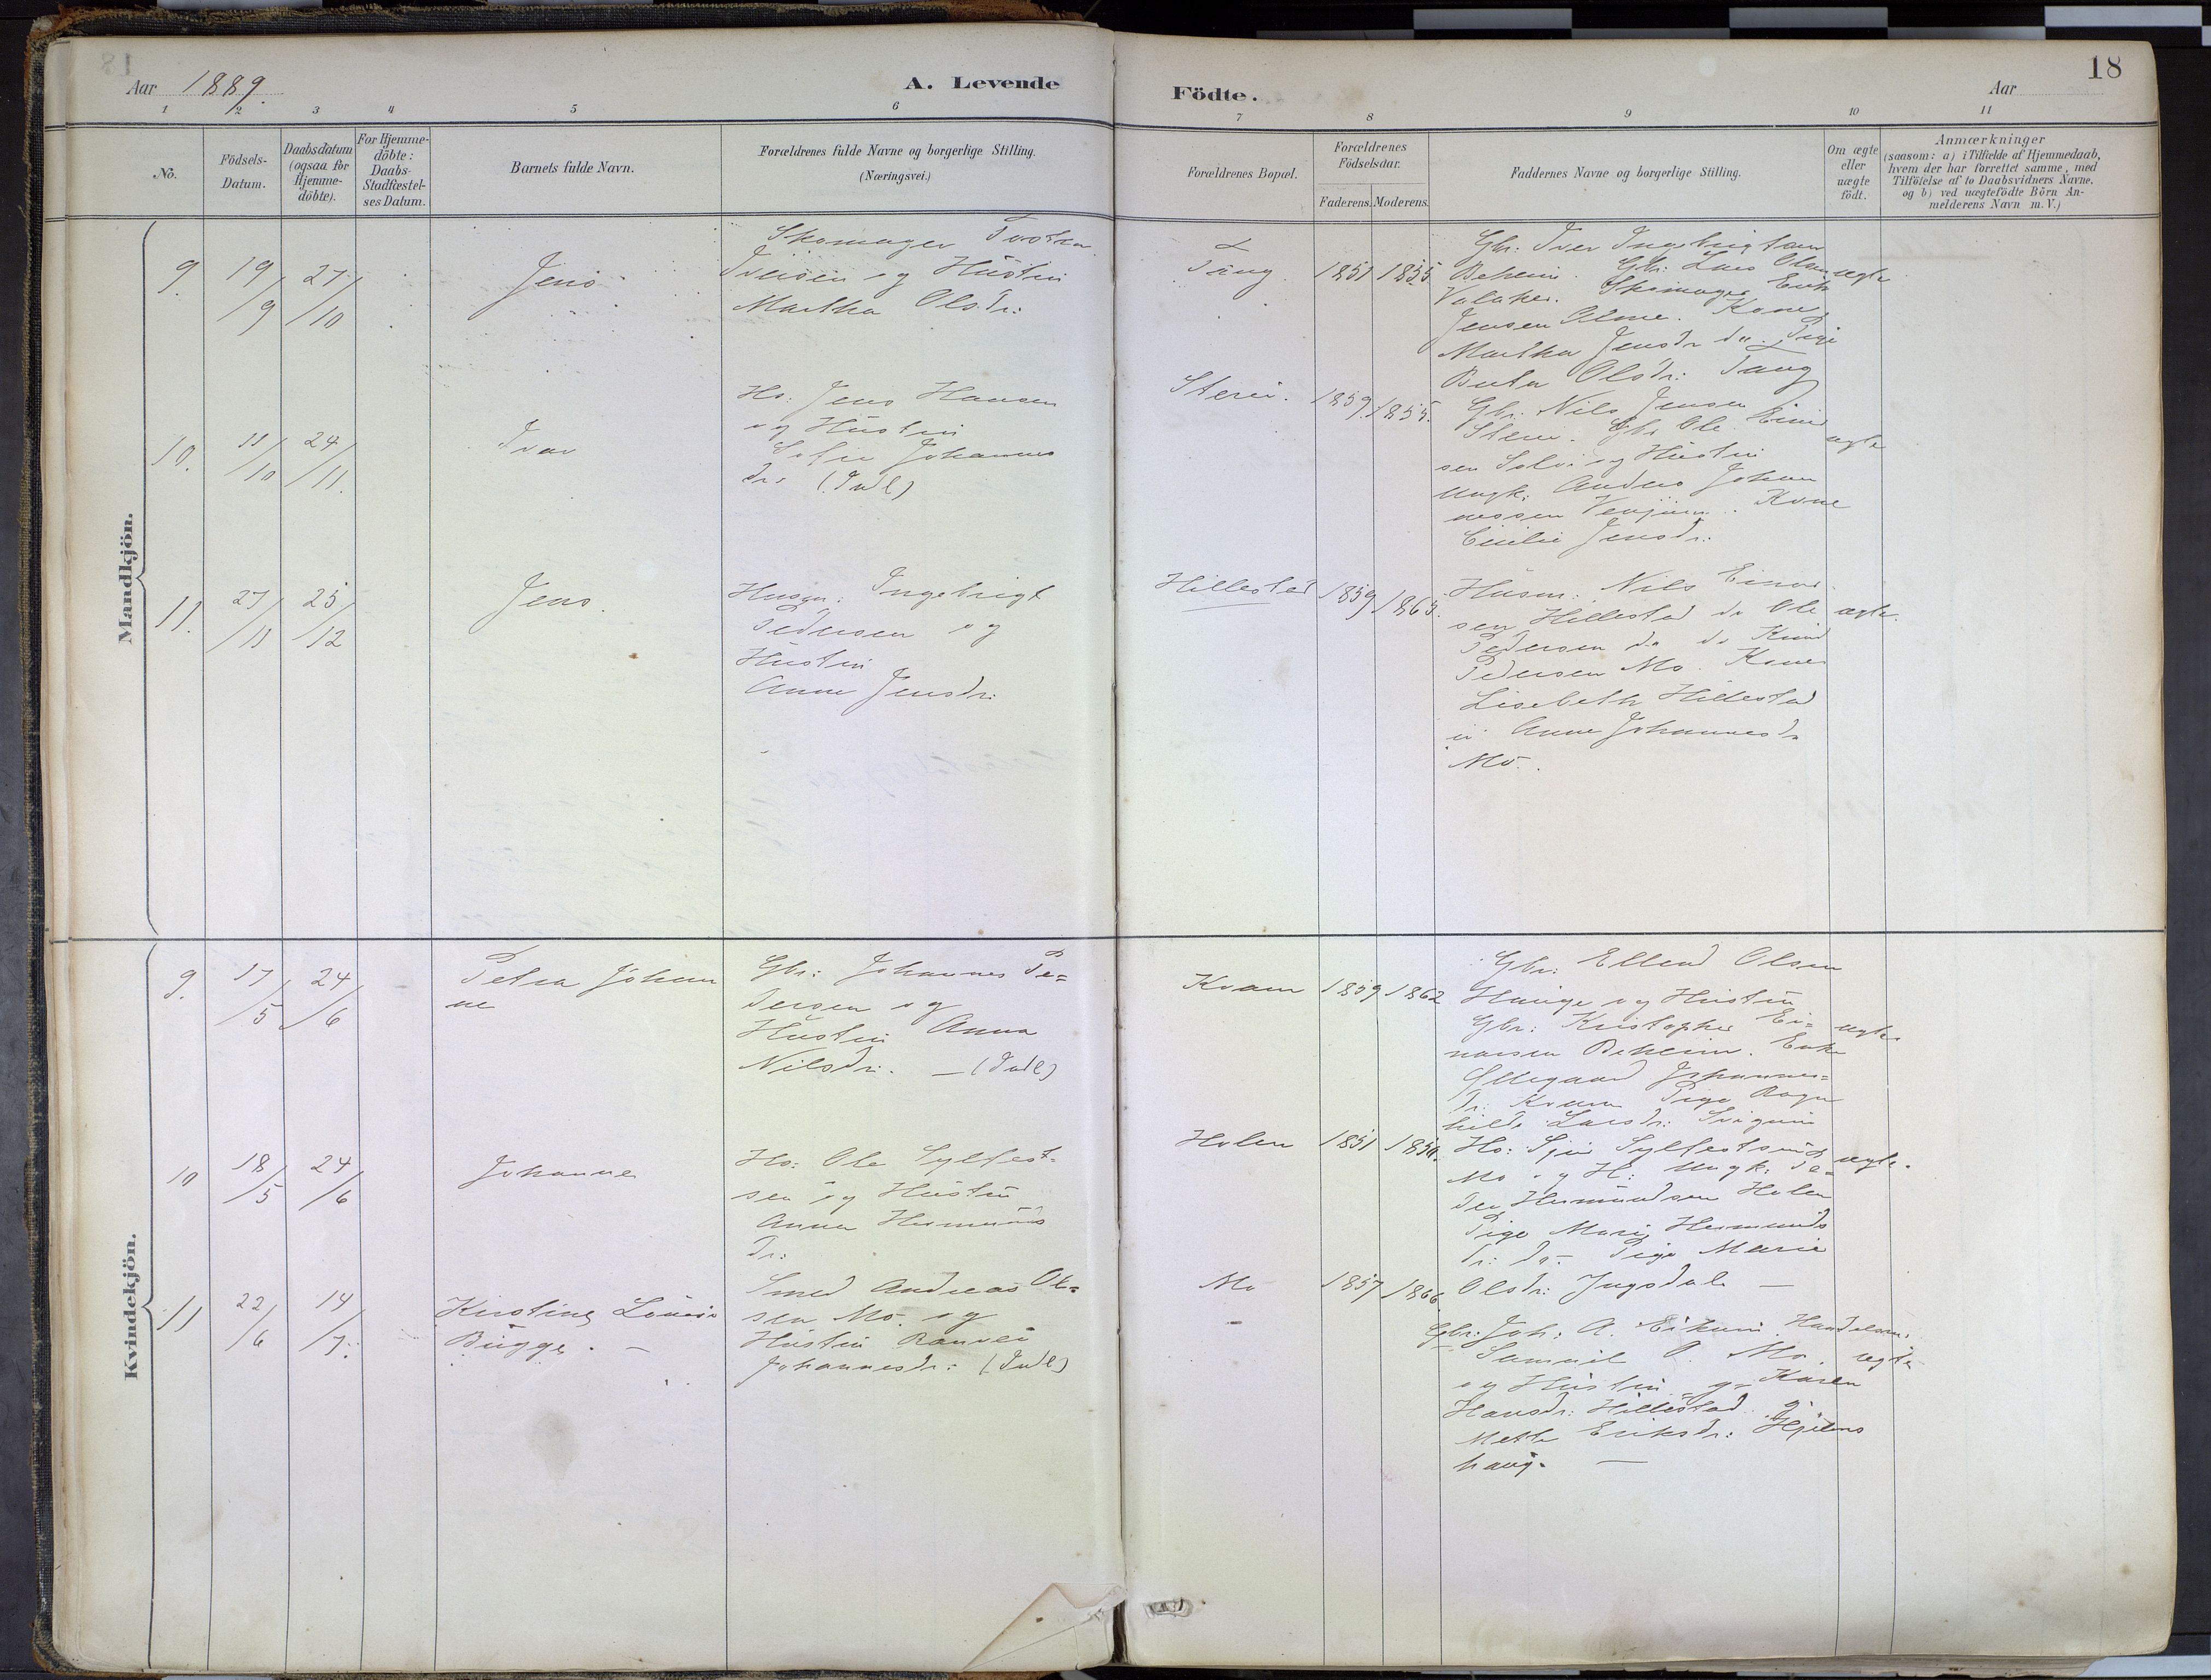 18
Aar 1889.
A. Levende
Födte.
Aar
1 2 3 4 5 6
7 8 9 10 11
No.
Födsels-
Datum.
Daabsdatum
(ogsaa for
Hjemme-
döbte).
For Hjemme-
döbte:
Daabs-
Stadfæstel-
ses Datum.
Barnets fulde Navn.
Forældrenes fulde Navne og borgerlige Stilling.
(Næringsvei.)
Forældrenes Bopæl.
Forældrenes
Födselsaar.
Faderens. Moderens.
Faddernes Navne og borgerlige Stilling.
Om ægte
eller
uægte
födt.
Anmærkninger
(saasom: a) i Tilfælde af Hjemmedaab,
hvem der har forrettet samme, med
Tilföielse af to Daabsvidners Navne,
og b) ved uægtefödte Börn An-
melderens Navn m. V.)
Mandkjön.
9. 19/9 27/10
Jens
Skomager
Iversen og Hustru
Martha Olsdr:
1851 1855
Gbr. Iver Ingebrigtsen
Beheim. Gbr: Lars Olsen
Skomager
Jensen Kone
Martha Jensdr do. Pige
Olsdr:
ægte
10. 11/10 24/11.
Ivar
Hs: Jens Hansen
og Hustru
Sofie Johannes
dr: (Indl)
1859. 1855.
Gbr: Nils Jensen
Gbr Ole
sen og Hustru
Ungk: Anders Johan
nessen Kone
Jensdr:
ægte
11. 27/11 25/12
Jens.
Husm: Ingebrigt
Pedersen og
Hustru
Anna Jensdr:
Hillestad 1859 1863.
Husm: Nils Einar
sen Hillestad do Ole
Pedersen do do
Pedersen Mo. Kone
Lisebeth Hillestad
Anne Johannesdr
Mo.
ægte.
Kvindekjön.
9. 17/5 24/6
Petra Johan
ne
Gbr: Johannes Pe=
dersen og
Hustru Anna
Nilsdr. — (Indl)
Kvam 1859 1862
Gbr: Ellend Olsen
Hauge og Hustru
Gbr: Kristopher Ei=
narsen Beheim. Enke
Johannes=
dr: Kvam Pige Ragn
hilde Larsdr:
ægte
10 18/5 24/6
Johanne
Hs: Ole Sylfest=
sen og Hustru
Anna Hermunds
dr:
Holen 1851 1850.
Hs: Sylfestsen
Mo og H: Ungk: Pe=
der Hermundsen Holen
Pige Mari Hermunds
dr: do. Pige Marie
Olsdr: Ingsdal —
ægte.
11 22/6 14/7.
Kirstine Lovise
Bugge. —
Smed Andreas Ol=
sen Mo og
Hustru Ranvei
Johannesdr: (Indl)
Mo 1857 1866.
Gbr: Joh: A. Eikum. Handelsm.
Samuel O. Mo.
og Hustru g. Karen
Hansdr: Hillestad
Mette Eriksdr:
haug. —
ægte